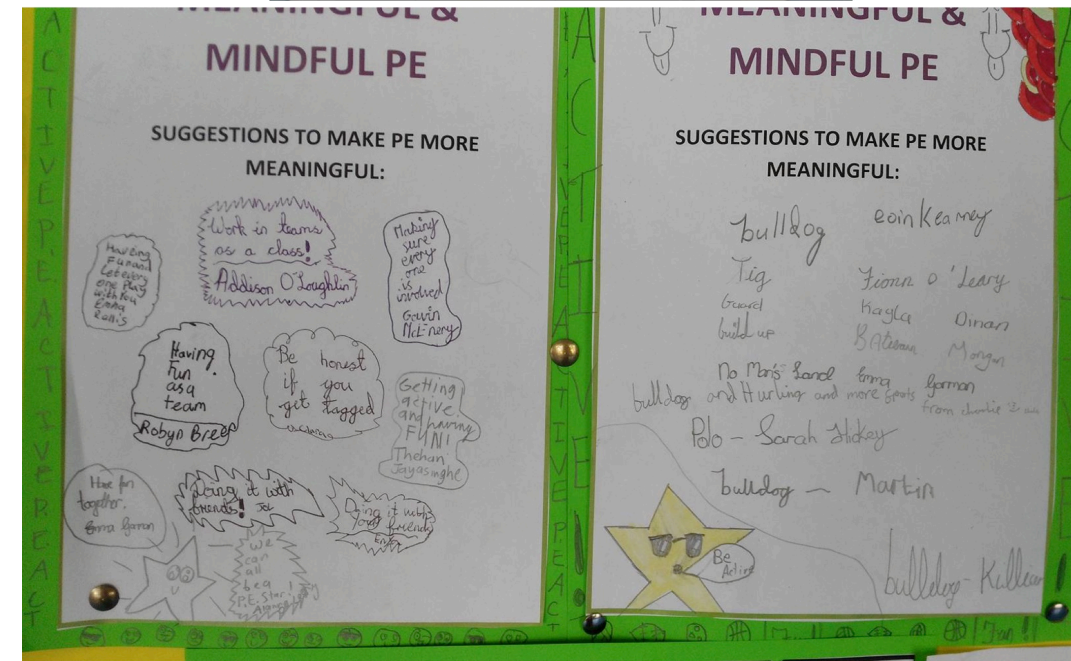 MEANINGFUL &
MINDFUL PE
SUGGESTIONS TO MAKE PE MORE
MEANINGFUL:
Having
Fun and
Let every
one Play
with You
Emma
Work in teams
as a class!
Addison O'Loughlin
Making
sure
every
one
is
involved
Gavin
McEnery
Having
Fun
as a
team
Robyn Breen
Be honest
if you
get tagged
Getting
active
and having
FUN!
Thehan
Jayasinghe
Have fun
together.
Emma Gorman
Doing it with
friends!
Doing it with
your friends
We
can
all
be a
P.E. Star!
MEANINGFUL &
MINDFUL PE
SUGGESTIONS TO MAKE PE MORE
MEANINGFUL:
bulldog eoin Kearney
Tig Fionn O'Leary
Guard Kayla Dinan
build up Bateman Morgan
No Man's Land Emma Gorman
bulldog and Hurling and more Sports from
Polo - Sarah Hickey
bulldog - Martin
Be
Active
bulldog - Killian
ACTIVE P.E. ACT IVE P.E. ACT